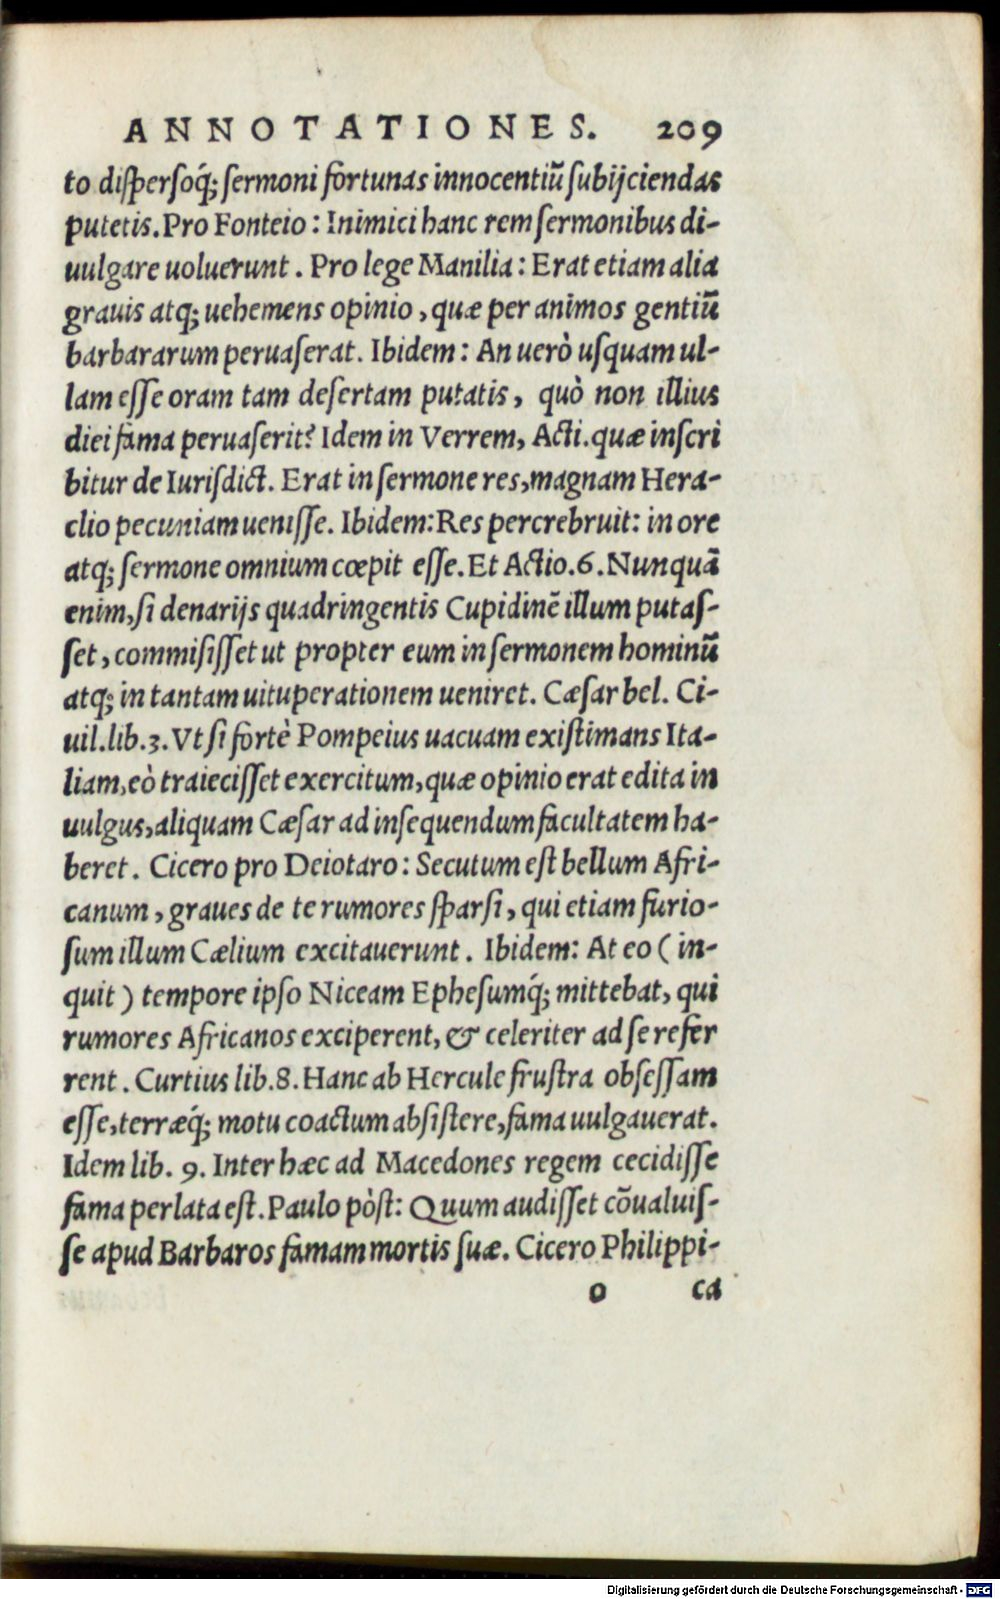 ANNOTATIONES. 209
to dispersoq́; sermoni fortunas innocentiũ subijciendas
putetis. Pro Fonteio: Inimici hanc rem sermonibus di-
uulgare uoluerunt. Pro lege Manilia: Erat etiam alia
grauis atq; uehemens opinio, quæ per animos gentiũ
barbararum peruaserat. Ibidem: An uerò usquam ul-
lam esse oram tam desertam putatis, quò non illius
diei fama peruaserit? Idem in Verrem, Acti. quæ inscri
bitur de Iurisdict. Erat in sermone res, magnam Hera-
clio pecuniam uenisse. Ibidem: Res percrebruit: in ore
atq; sermone omnium cœpit esse. Et Actio. 6. Nunquã
enim, si denarijs quadringentis Cupidinẽ illum putas-
set, commisisset ut propter eum in sermonem hominũ
atq; in tantam uituperationem ueniret. Cæsar bel. Ci-
uil. lib. 3. Vt si fortè Pompeius uacuam existimans Ita-
liam, eò traiecisset exercitum, quæ opinio erat edita in
uulgus, aliquam Cæsar ad insequendum facultatem ha-
beret. Cicero pro Deiotaro: Secutum est bellum Afri-
canum, graues de te rumores sparsi, qui etiam furio-
sum illum Cælium excitauerunt. Ibidem: At eo (in-
quit) tempore ipso Niceam Ephesumq́; mittebat, qui
rumores Africanos exciperent, & celeriter ad se refer
rent. Curtius lib. 8. Hanc ab Hercule frustra obsessam
esse, terræq́; motu coactum absistere, fama uulgauerat.
Idem lib. 9. Inter hæc ad Macedones regem cecidisse
fama perlata est. Paulo pòst: Quum audisset cõualuis-
se apud Barbaros famam mortis suæ. Cicero Philippi-
o ca
Digitalisierung gefördert durch die Deutsche Forschungsgemeinschaft - DFG